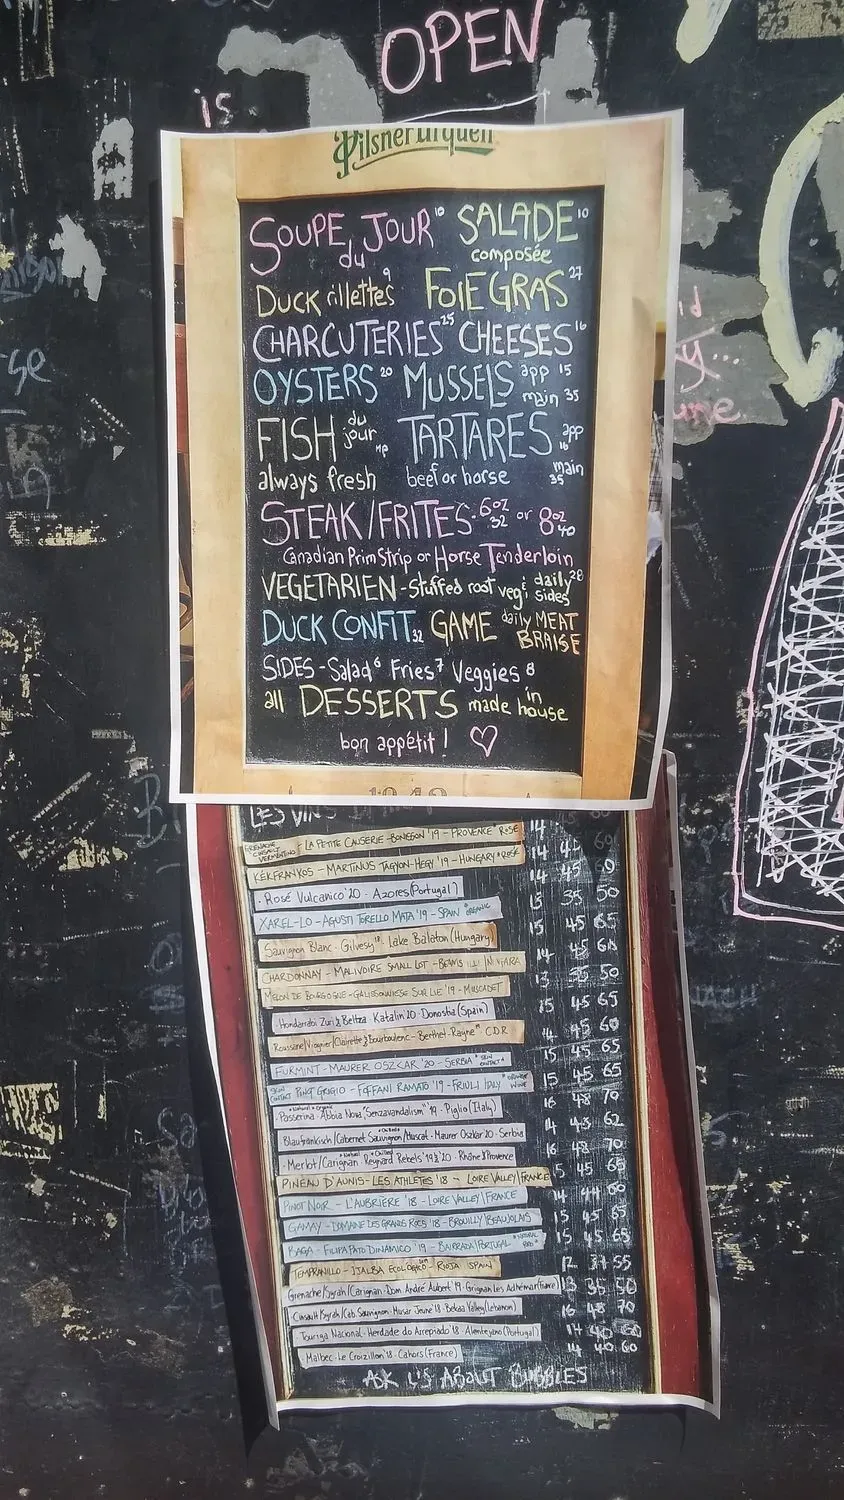 OPEN
is
Pilsner Urquell
SOUPE du JOUR 10 SALADE composée 10
DUCK rillettes 9 FOIE GRAS 27
CHARCUTERIES 25 CHEESES 16
OYSTERS 20 MUSSELS app 15 main 35
FISH du jour MP TARTARES app 16
always fresh beef or horse main 35
STEAK/FRITES - 6oz 32 or 8oz 40
Canadian Prim Strip or Horse Tenderloin
VEGETARIEN - Stuffed root veg & daily sides 28
DUCK CONFIT 32 GAME daily MEAT BRAISE
SIDES - Salad 6 Fries 7 Veggies 8
all DESSERTS made in house
bon appétit!
LES VINS
GRENACHE CINSAULT VERMENTINO - LA PETITE CAUSERIE - BONESON '19 - PROVENCE * ROSE 14
KÉKFRANKOS - MARTINUS TAGYON-HEGY '19 - HUNGARY * ROSE 14 45
Rosé Vulcanico '20 - Azores (Portugal) 14 45 60
XAREL-LO - AGUSTI TORELLO MATA '19 - SPAIN * ORGANIC 13 35 50
Sauvignon Blanc - Gilvesy 18 Lake Balaton (Hungary) 15 45 65
CHARDONNAY - MALIVOIRE SMALL LOT - BEAMSVILLE NIAGARA 14 45 60
MELON DE BOURGOGNE - GALISSONNIESE SUR LIE '19 - MUSCADET 13 35 50
Hondarrabi Zuri & Beltza - Katalin 20 - Donostia (Spain) 15 45 65
Roussane/Viognier/Clairette & Bourboulenc - Berthet-Rayne 19 C.D.R 14 45 60
FURMINT - MAURER OSZCAR '20 - SERBIA * SKIN CONTACT * 15 45 65
SKIN CONTACT PINOT GRIGIO - FOFFANI RAMATO '19 - FRIULI ITALY * ORANGE WINE 15 45 65
* Natural * Organic Passerina - Abbia Nova "Senzavandalism" '19 - Piglio (Italy) 16 48 70
* Chilled Blaufränkisch/Cabernet Sauvignon/Muscat - Maurer Oszkar 20 - Serbia 14 43 62
* Natural * Chilled Merlot/Carignan - Reynard Rebels '19 & 20 - Rhône & Provence 16 48 70
PINEAU D'AUNIS - LES ATHLETES '18 - LOIRE VALLEY/FRANCE 15 45 65
PINOT NOIR - L'AUBRIÈRE '18 - LOIRE VALLEY/FRANCE 14 44 60
GAMAY - DOMAINE DES GRANDS ROCS '18 - BROUILLY/BEAUJOLAIS 15 45 65
BAGA - FILIPA PATO DINAMICO '19 - BAIRRADA/PORTUGAL * NATURAL 15 45 65
TEMPRANILLO - IJALBA ECOLOGICO - RIOJA SPAIN 12 55
Grenache/Syrah/Carignan - Dom. André Aubert '19 - Grignan Les Adhémar (France) 13 50
Cinsault/Syrah/Cab. Sauvignon - Musar Jeune '18 - Bekaa Valley (Lebanon) 16 48 70
Touriga Nacional - Herdade do Arrepiado '18 - Alentejano (Portugal) 14 40 60
Malbec - Le Croizillon '18 - Cahors (France) 14 40 60
ASK US ABOUT BUBBLES